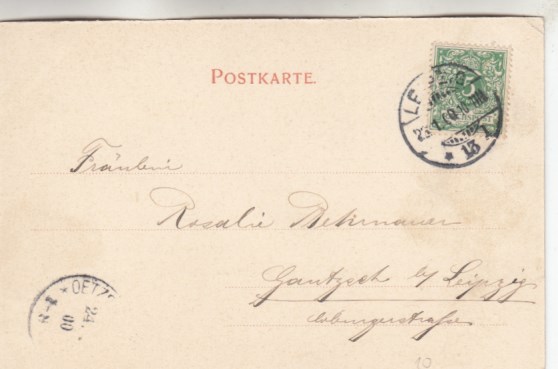 POSTKARTE.
LEIPZIG
* 13
5
Fräulein
Rosalie Behrnauer
Gautzsch b/ Leipzig
Coburgerstraße
* OETZ
24
00
10